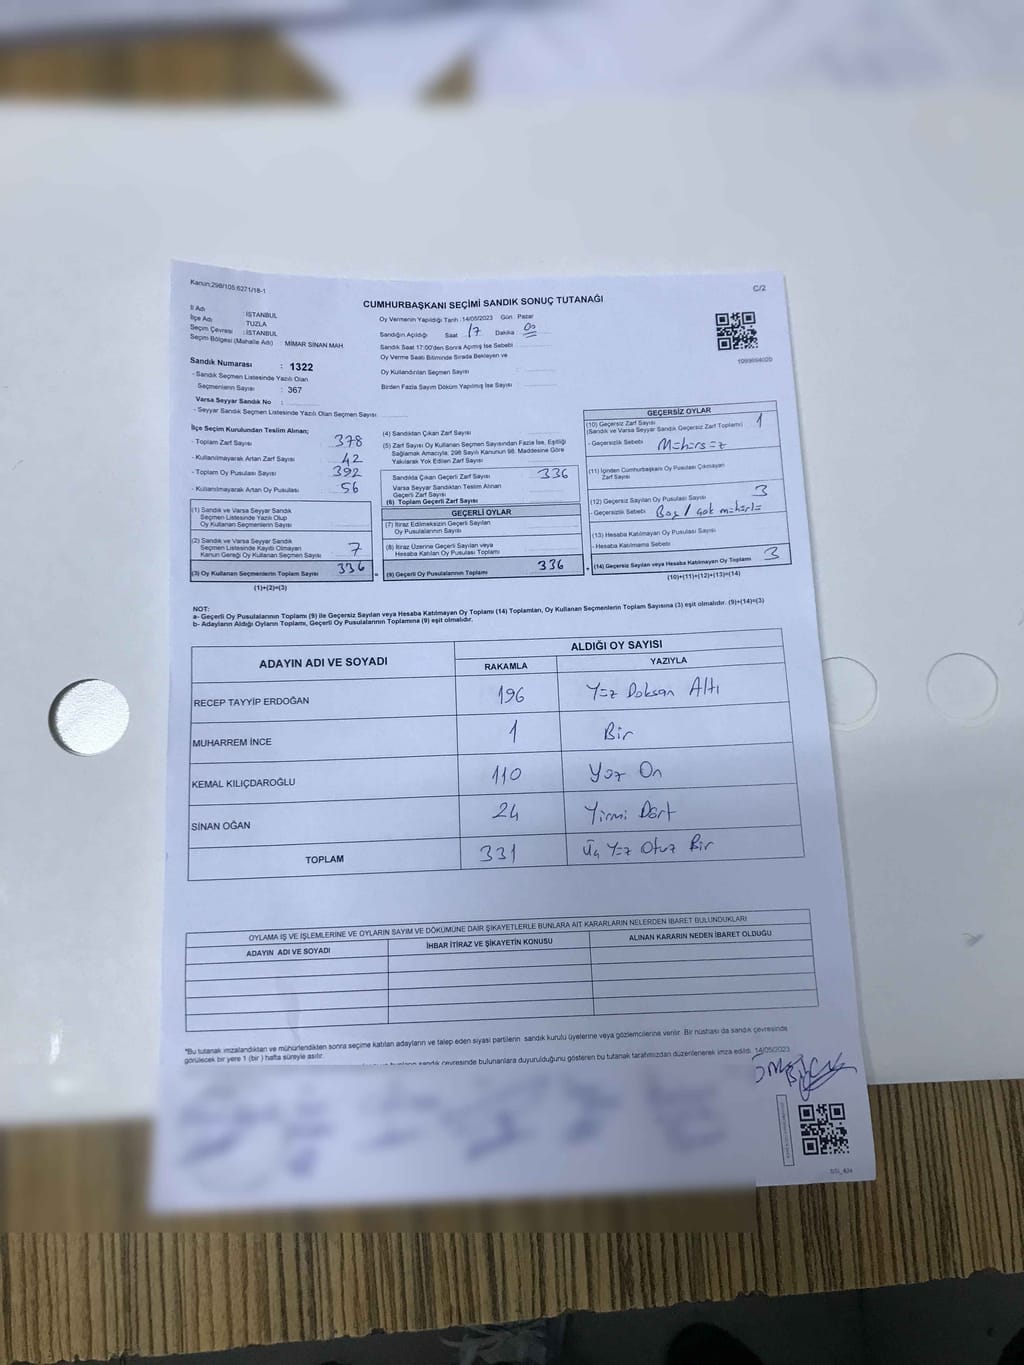 Kanun:298/105.6271/18-1
C/2
CUMHURBAŞKANI SEÇİMİ SANDIK SONUÇ TUTANAĞI
İl Adı : İSTANBUL
İlçe Adı : TUZLA
Seçim Çevresi : İSTANBUL
Seçim Bölgesi (Mahalle Adı) : MİMAR SİNAN MAH.
Oy Vermenin Yapıldığı Tarih :14/05/2023 Gün : Pazar
Sandığın Açıldığı Saat 17 Dakika 00
Sandık Saat 17:00'den Sonra Açılmış İse Sebebi :
Oy Verme Saati Bitiminde Sırada Bekleyen ve
Oy Kullandırılan Seçmen Sayısı :
Birden Fazla Sayım Döküm Yapılmış İse Sayısı :
Sandık Numarası : 1322
- Sandık Seçmen Listesinde Yazılı Olan
Seçmenlerin Sayısı : 367
Varsa Seyyar Sandık No :
- Seyyar Sandık Seçmen Listesinde Yazılı Olan Seçmen Sayısı :
İlçe Seçim Kurulundan Teslim Alınan;
- Toplam Zarf Sayısı 378
- Kullanılmayarak Artan Zarf Sayısı 42
- Toplam Oy Pusulası Sayısı 392
- Kullanılmayarak Artan Oy Pusulası 56
(1) Sandık ve Varsa Seyyar Sandık
Seçmen Listesinde Yazılı Olup
Oy Kullanan Seçmenlerin Sayısı
(2) Sandık ve Varsa Seyyar Sandık
Seçmen Listesinde Kayıtlı Olmayan
Kanun Gereği Oy Kullanan Seçmen Sayısı 7
(3) Oy Kullanan Seçmenlerin Toplam Sayısı 336
(1)+(2)=(3)
(4) Sandıktan Çıkan Zarf Sayısı
(5) Zarf Sayısı Oy Kullanan Seçmen Sayısından Fazla İse, Eşitliği
Sağlamak Amacıyla; 298 Sayılı Kanunun 98. Maddesine Göre
Yakılarak Yok Edilen Zarf Sayısı
Sandıkta Çıkan Geçerli Zarf Sayısı 336
Varsa Seyyar Sandıktan Teslim Alınan
Geçerli Zarf Sayısı
(6) Toplam Geçerli Zarf Sayısı
GEÇERLİ OYLAR
(7) İtiraz Edilmeksizin Geçerli Sayılan
Oy Pusulasının Sayısı
(8) İtiraz Üzerine Geçerli Sayılan veya
Hesaba Katılan Oy Pusulası Toplamı
(9) Geçerli Oy Pusulalarının Toplamı 336
GEÇERSİZ OYLAR
(10) Geçersiz Zarf Sayısı
(Sandık ve Varsa Seyyar Sandık Geçersiz Zarf Toplamı) 1
- Geçersizlik Sebebi Mühürsüz
(11) İçinden Cumhurbaşkanı Oy Pusulası Çıkmayan
Zarf Sayısı
(12) Geçersiz Sayılan Oy Pusulası Sayısı 3
- Geçersizlik Sebebi Boş / çok mühürlü
(13) Hesaba Katılmayan Oy Pusulası Sayısı
- Hesaba Katılmama Sebebi
(14) Geçersiz Sayılan veya Hesaba Katılmayan Oy Toplamı 3
(10)+(11)+(12)+(13)=(14)
NOT:
a- Geçerli Oy Pusulalarının Toplamı (9) ile Geçersiz Sayılan veya Hesaba Katılmayan Oy Toplamı (14) Toplamları, Oy Kullanan Seçmenlerin Toplam Sayısına (3) eşit olmalıdır. (9)+(14)=(3)
b- Adayların Aldığı Oyların Toplamı, Geçerli Oy Pusulalarının Toplamına (9) eşit olmalıdır.
ADAYIN ADI VE SOYADI
ALDIĞI OY SAYISI
RAKAMLA YAZIYLA
RECEP TAYYİP ERDOĞAN 196 Yüz Doksan Altı
MUHARREM İNCE 1 Bir
KEMAL KILIÇDAROĞLU 110 Yüz On
SİNAN OĞAN 24 Yirmi Dört
TOPLAM 331 Üç Yüz Otuz Bir
OYLAMA İŞ VE İŞLEMLERİNE VE OYLARIN SAYIM VE DÖKÜMÜNE DAİR ŞİKAYETLERLE BUNLARA AİT KARARLARIN NELERDEN İBARET BULUNDUKLARI
ADAYIN ADI VE SOYADI İHBAR İTİRAZ VE ŞİKAYETİN KONUSU ALINAN KARARIN NEDEN İBARET OLDUĞU
*Bu tutanak imzalandıktan ve mühürlendikten sonra seçime katılan adayların ve talep eden siyasi partilerin sandık kurulu üyelerine veya gözlemcilerine verilir. Bir nüshası da sandık çevresinde
görülecek bir yere 1 (bir ) hafta süreyle asılır.
sandık çevresinde bulunanlara duyurulduğunu gösteren bu tutanak tarafımızdan düzenlenerek imza edildi. 14/05/2023